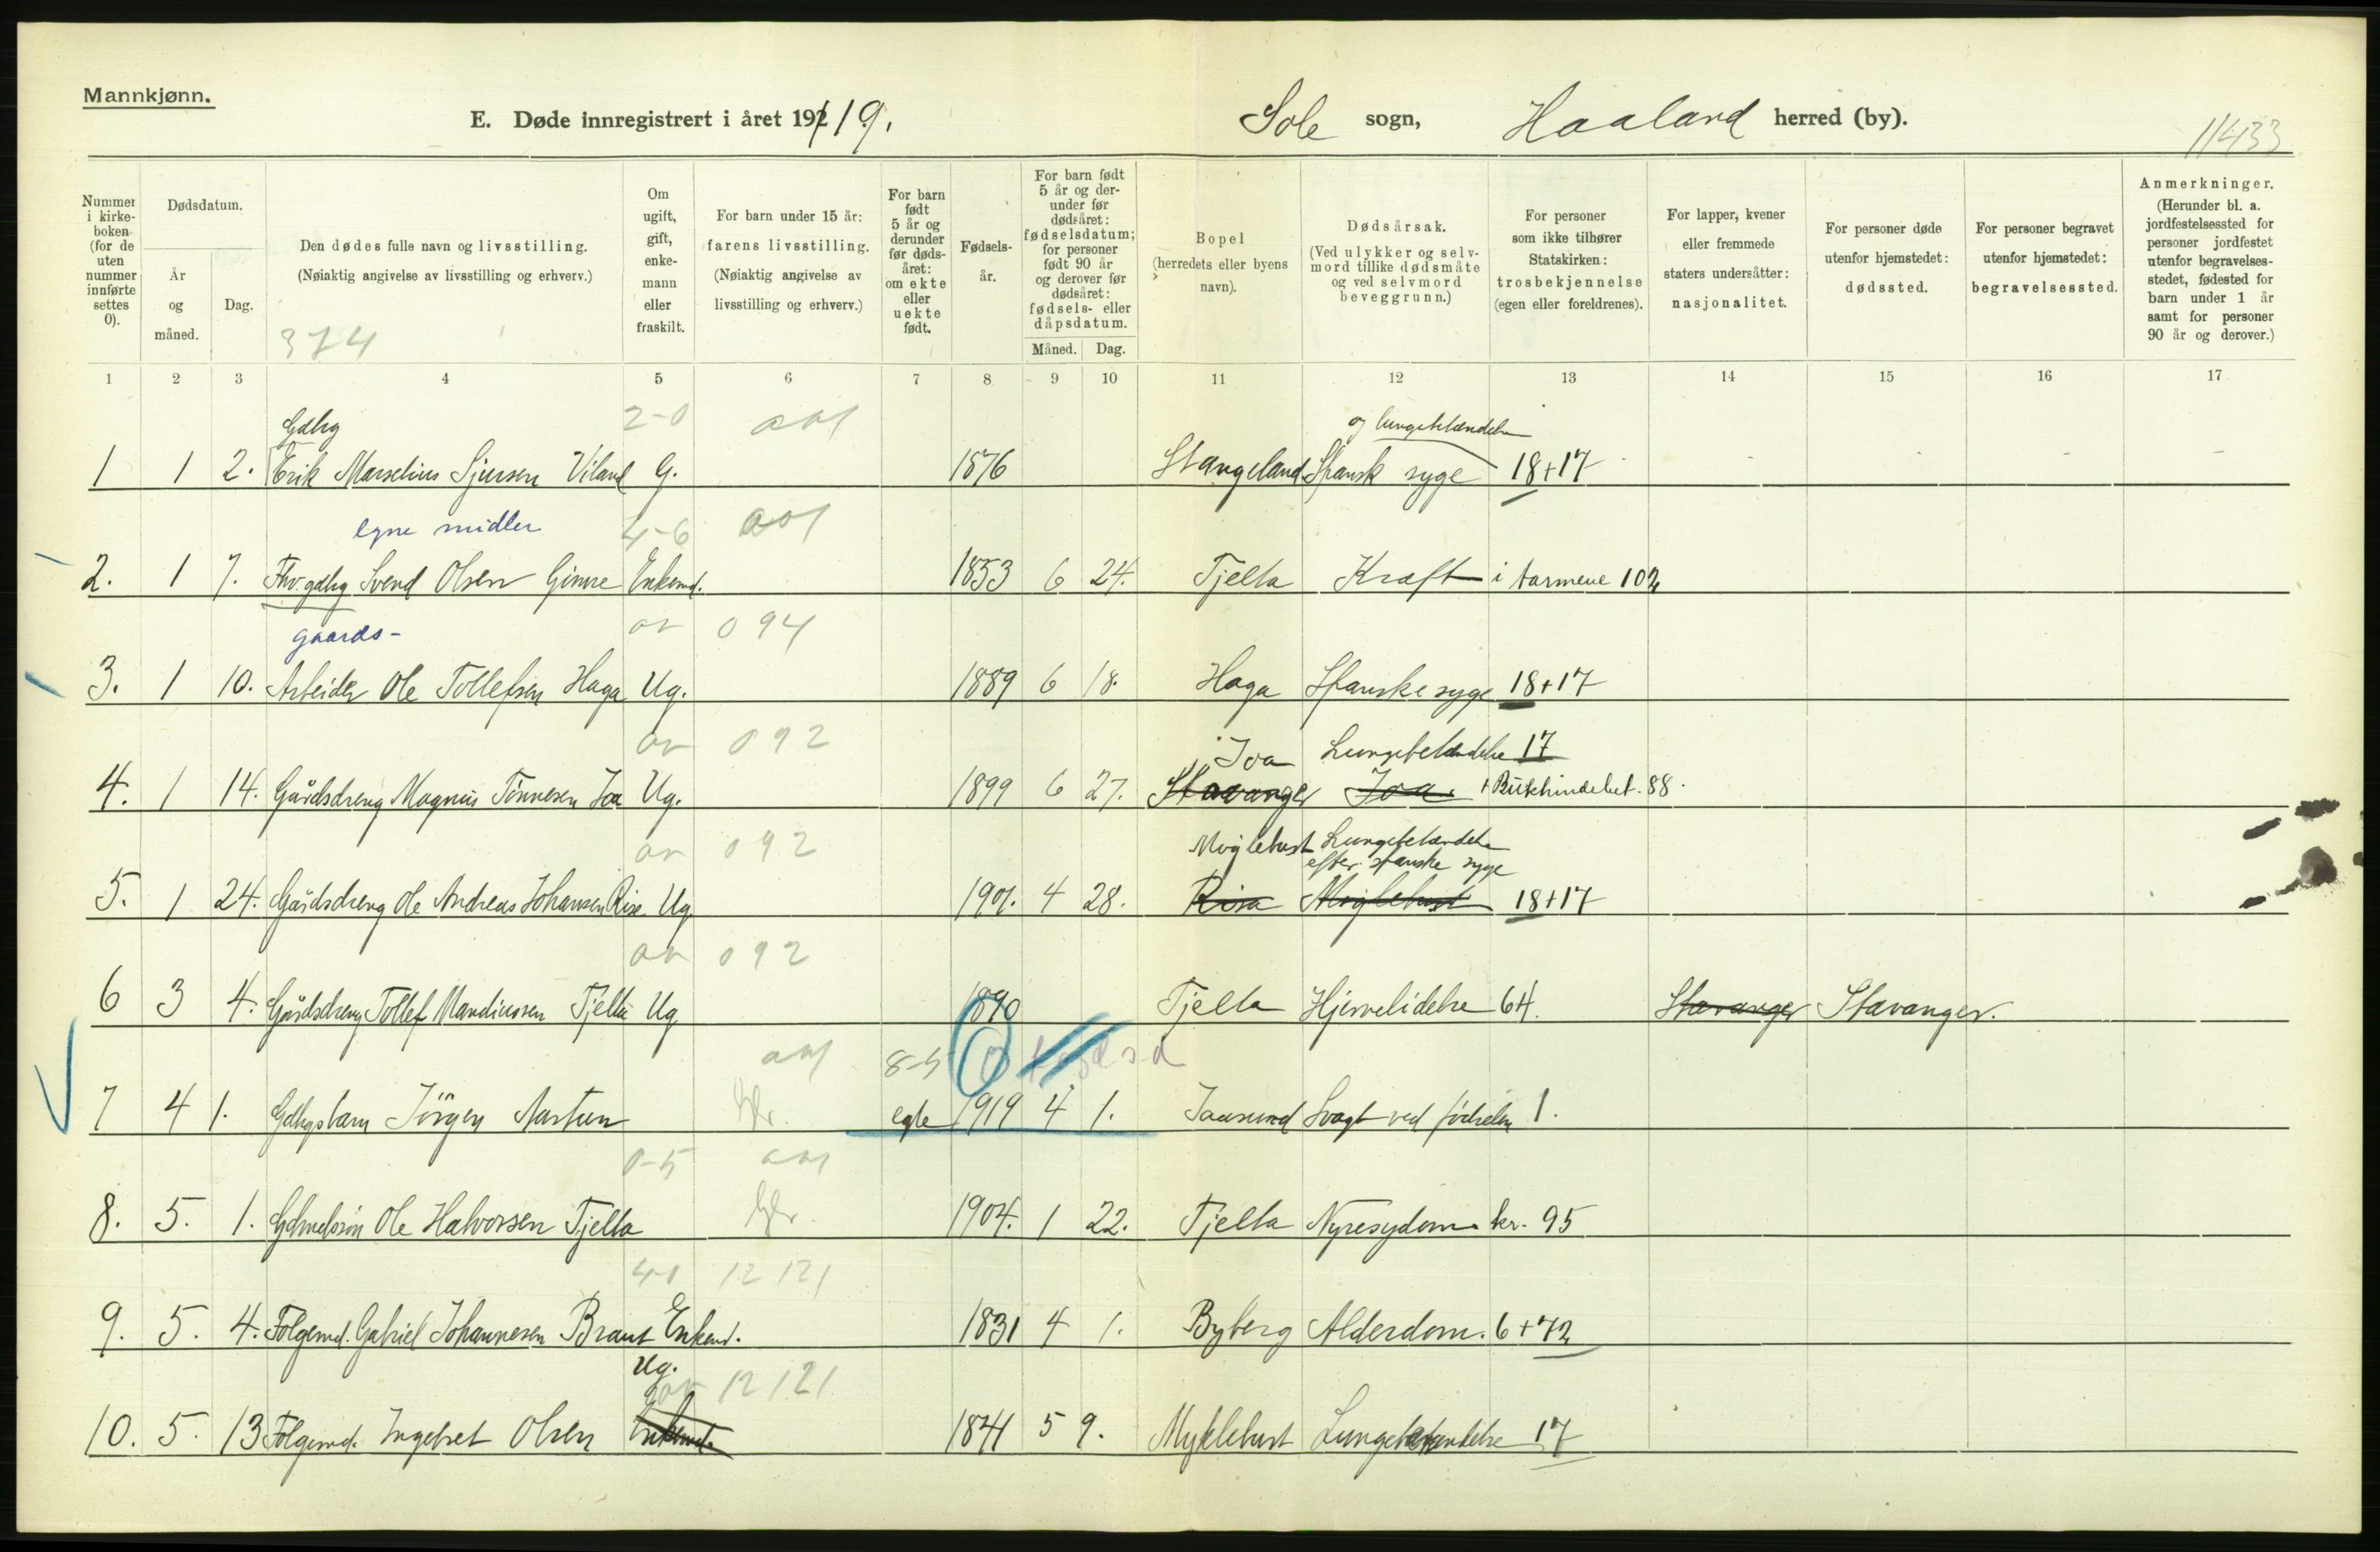 Mannkjønn.
E. Døde innregistrert i året 192/19. Sole sogn, Haaland herred (by).
11433
Nummer i kirkeboken (for de uten nummer innførte settes 0).
Dødsdatum.
År og måned.
Dag.
Den dødes fulle navn og livsstilling.
(Nøiaktig angivelse av livsstilling og erhverv.)
374
Om ugift, gift, enkemann eller fraskilt.
For barn under 15 år: farens livsstilling.
(Nøiaktig angivelse av livsstilling og erhverv.)
For barn født 5 år og derunder før dødsåret: om ekte eller uekte født.
Fødselsår.
For barn født 5 år og derunder før dødsåret: fødselsdatum; for personer født 90 år og derover før dødsåret: fødsels- eller dåpsdatum.
Måned. Dag.
Bopel
(herredets eller byens navn).
Dødsårsak.
(Ved ulykker og selvmord tillike dødsmåte og ved selvmord beveggrunn.)
For personer som ikke tilhører Statskirken: trosbekjennelse (egen eller foreldrenes).
For lapper, kvener eller fremmede staters undersåtter: nasjonalitet.
For personer døde utenfor hjemstedet: dødssted.
For personer begravet utenfor hjemstedet: begravelsessted.
Anmerkninger.
(Herunder bl. a. jordfestelsessted for personer jordfestet utenfor begravelsesstedet, fødested for barn under 1 år samt for personer 90 år og derover.)
1 2 3 4 5 6 7 8 9 10 11 12 13 14 15 16 17
Gdbg 2-0 og lungebetændelse
1 1 2. Erik Marselius Sjursen Viland G. 1876 Stangeland Spansk syge 18+17
egne midler 4-6
2. 1 7. Fhv. gdbg Svend Olsen Gimre Enkemd. 1853 6 24. Tjelta Kræft i tarmene 102
gaards- 094
3. 1 10. Arbeider Ole Tollefsen Haga Ug. 1889 6 18. Haga Spanske syge 18+17
092 Joa Lungebetændelse 17
4. 1 14. Gårdsdreng Magnus Tønnesen Joa Ug. 1899 6 27. Stavanger Joa + Bukhindebet. 88.
092 Møglebust Lungebetændelse
efter spanske syge
5. 1 24. Gårdsdreng Ole Andreas Johansen Rise Ug. 1901. 4 28. Risa Møglebust 18+17
092
6 3 4. Gårdsdreng Tollef Mandiussen Tjelta Ug. 1890 Tjelta Hjernelidelse 64. Stavanger Stavanger.
8-5 0
7 4 1. Gdbgsbarn Jörgen Aartun egte 1919 4 1. Jaasund Svagt ved fødselen 1.
0-5
8. 5. 1. Ole Halvorsen Tjelta 1904. 1 22. Tjelta Nyresygdom kr. 95
4-1 12 121
9. 5. 4. Følgemd. Gabriel Johannesen Braut Enkemd. 1831 4 1. Byberg Alderdom. 6+72
Ug. 12 121
10. 5. 13 Følgemd. Ingebret Olsen Enkemd. 1841 5 9. Myklebust Lungebetændelse 17